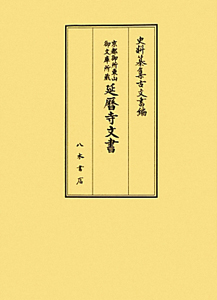 史料纂集古文書編
京都御所東山
御文庫所蔵
延暦寺文書
八木書店